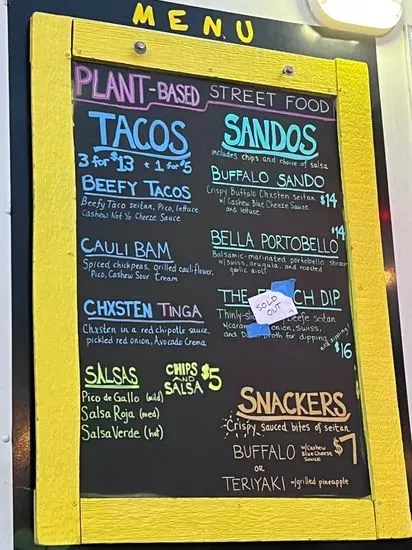 MENU
PLANT-BASED STREET FOOD
TACOS
3 for $13 * 1 for $5
BEEFY TACOS
Beefy Taco seitan, Pico, lettuce
Cashew Not Yo Cheeze Sauce
CAULI BAM
Spiced chickpeas, grilled cauliflower,
Pico, Cashew Sour Cream
CHXSTEN TINGA
Chxsten in a red chipotle sauce,
pickled red onion, Avocado Crema
SALSAS
Pico de Gallo (mild)
Salsa Roja (med)
Salsa Verde (hot)
CHIPS
AND
SALSA $5
SANDOS
includes chips and choice of salsa
BUFFALO SANDO
Crispy Buffalo Chxsten seitan
w/Cashew Blue Cheeze Sauce
and lettuce
$14
BELLA PORTOBELLO $14
Balsamic-marinated portobello shroom
w/swiss, arugula, and roasted
garlic aioli
THE CH DIP
SOLD
OUT
Thinly-sl Beefe seitan
onion, Swiss,
and broth for dipping
and dipping!
$16
SNACKERS
Crispy, sauced bites of seitan
BUFFALO w/Cashew
Blue Cheeze
Sauce
$7
OR
TERIYAKI w/grilled pineapple